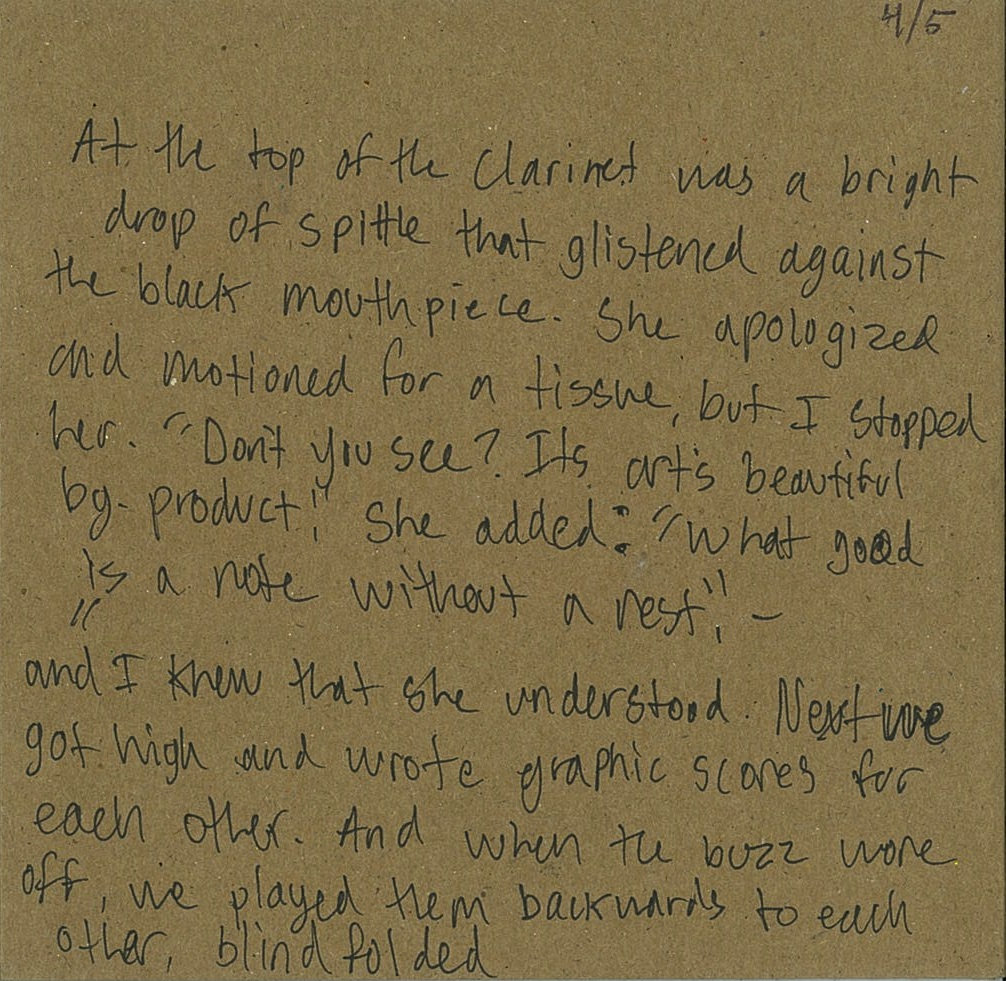 4/5
At the top of the clarinet was a bright
drop of spittle that glistened against
the black mouthpiece. She apologized
and motioned for a tissue, but I stopped
her. "Don't you see? Its art's beautiful
by-product!" She added: "What good
is a note without a rest", –
"
and I knew that she understood. Next we
got high and wrote graphic scores for
each other. And when the buzz wore
off, we played them backwards to each
other, blindfolded